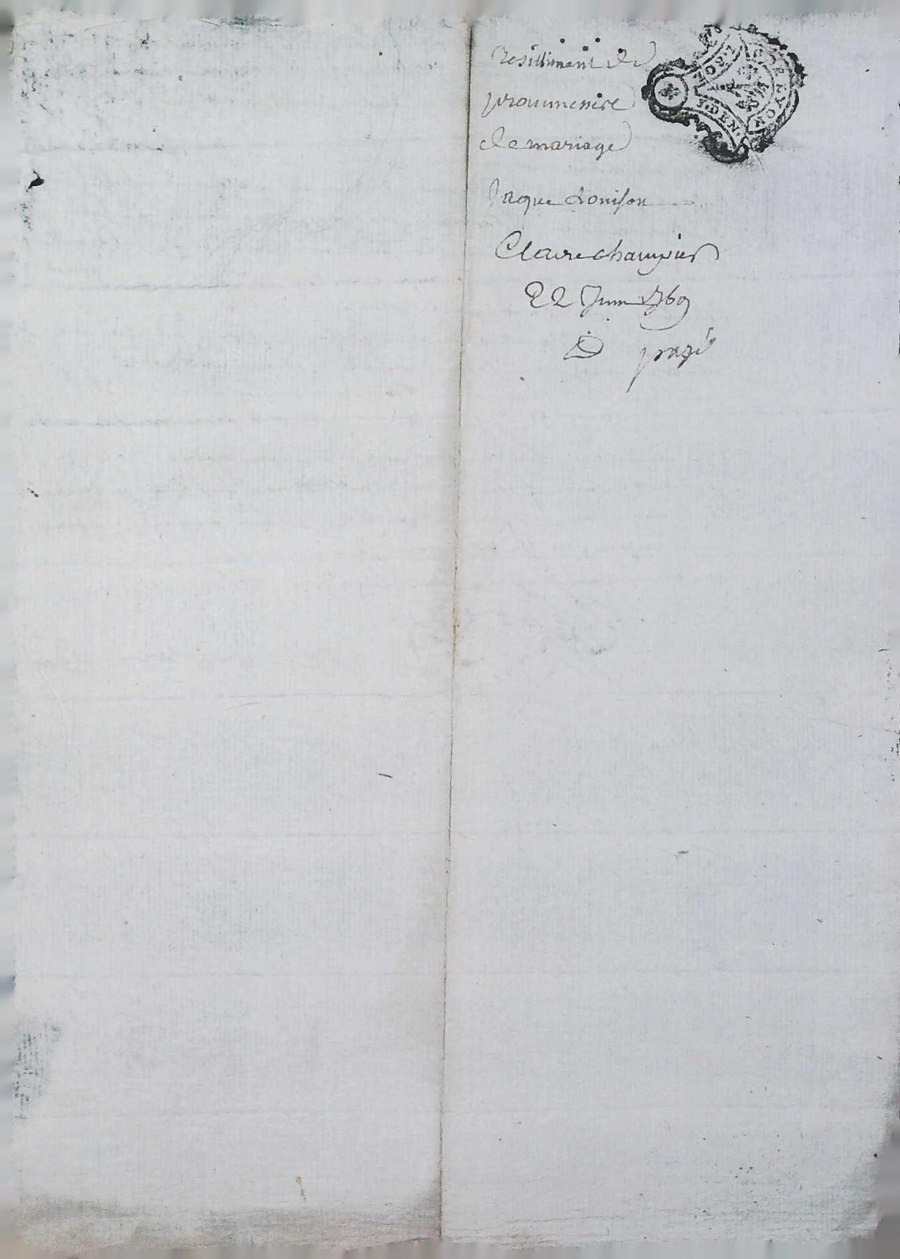 Resiliment de
proummesse
de mariage
Jaque Lonison
Claire champier
22 Juin 1769
GEN DE LYON